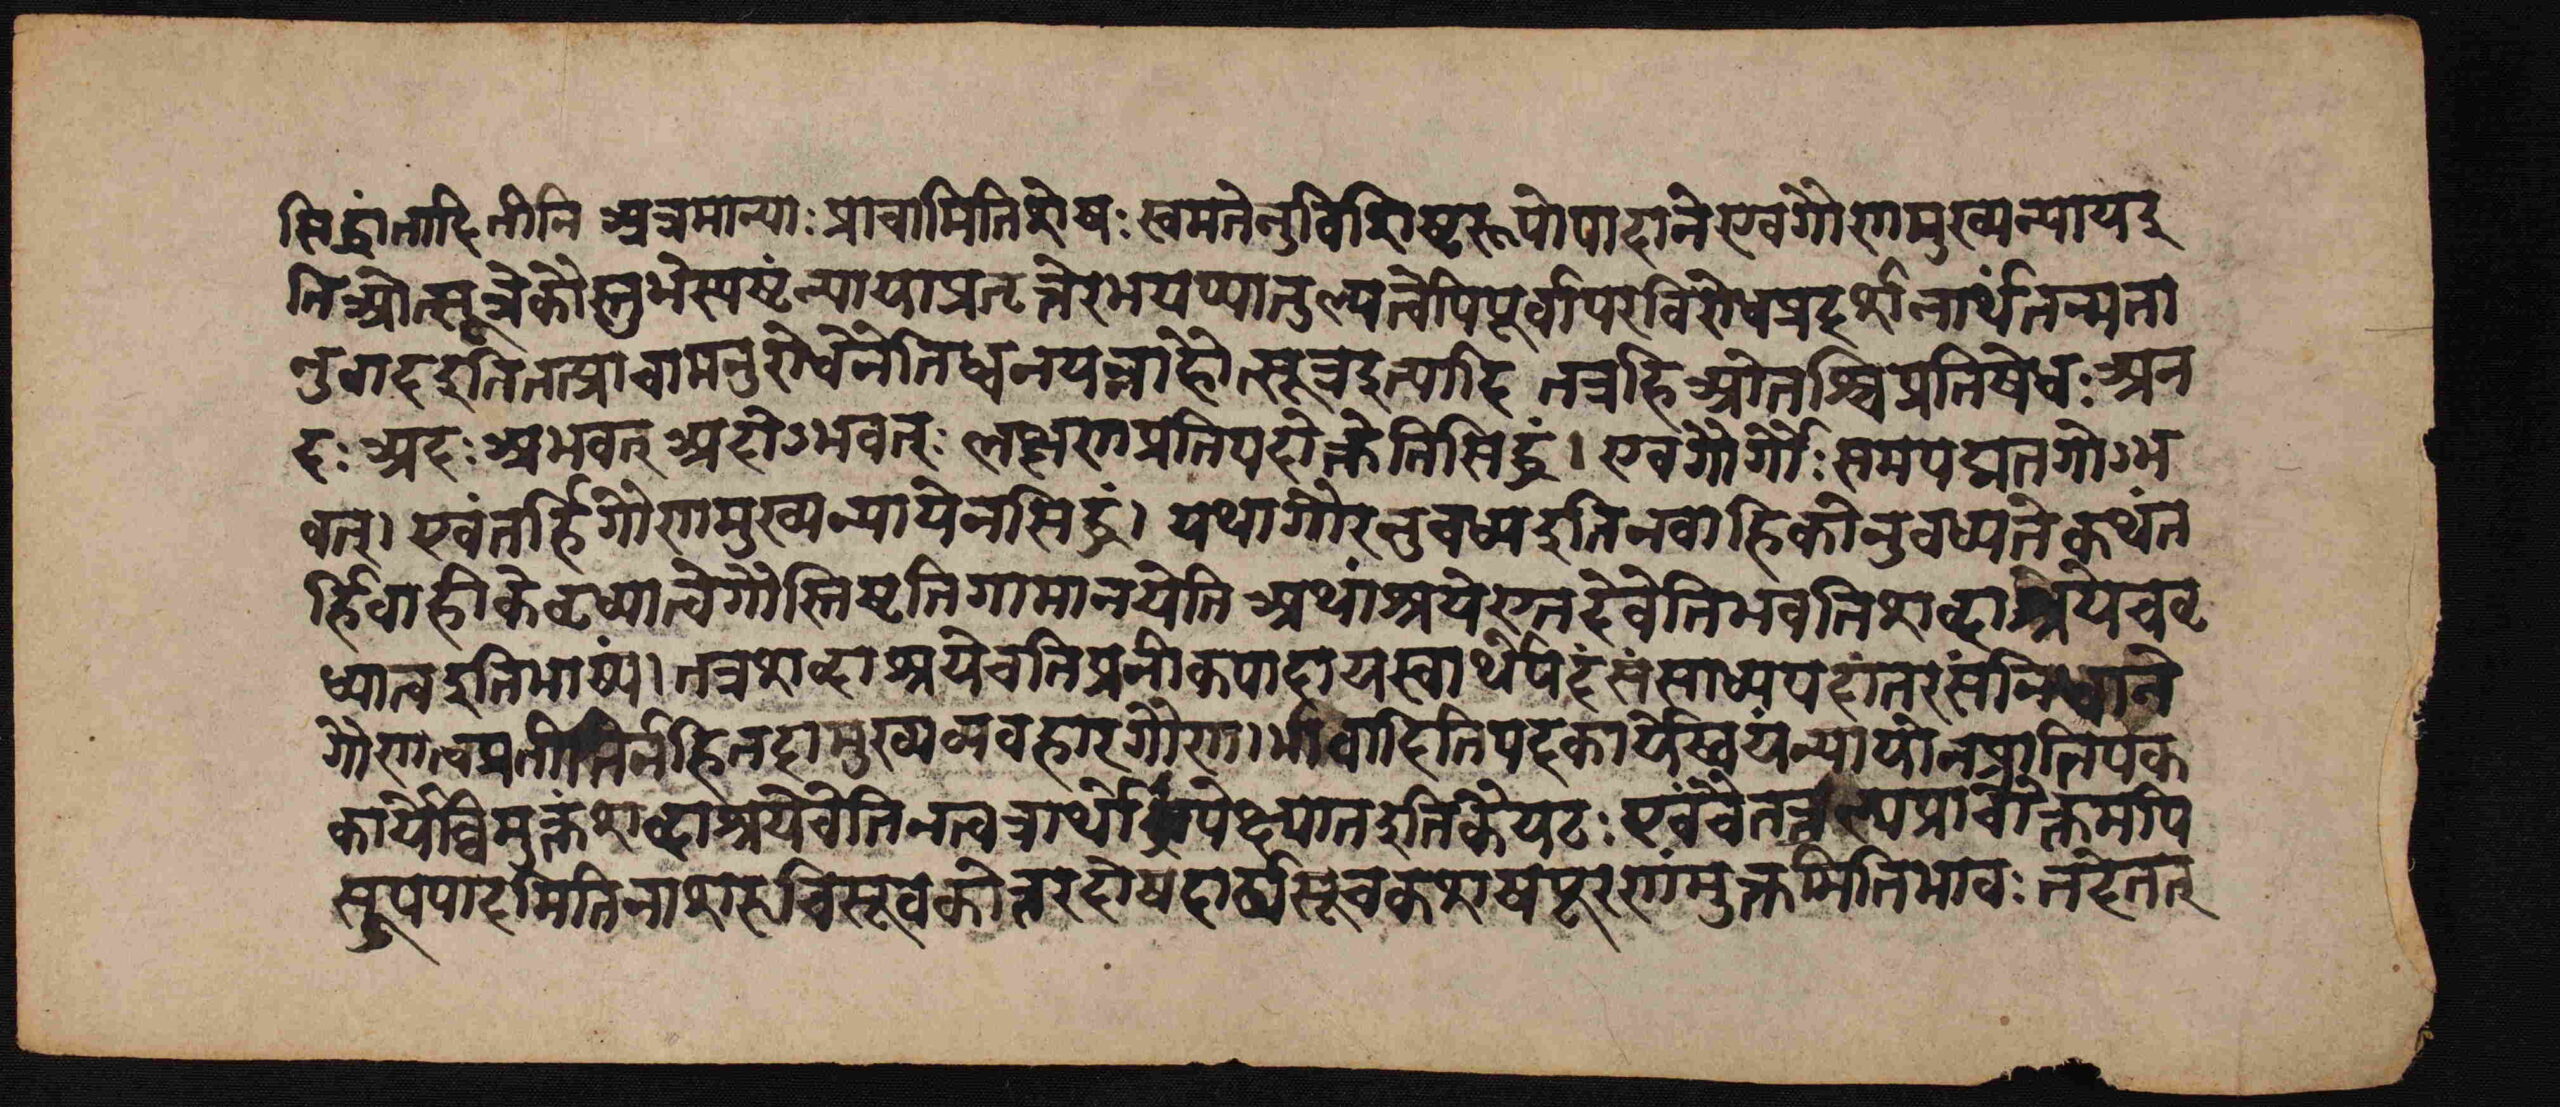 सिद्धांतादितीति अत्रमान्याः प्राचामितिशेषः स्वमतेतुविशिष्टरूपोपादाने एवगौणमुख्यन्यायइ
तिओत्सूत्रेकौस्तुभेस्पष्टं न्यायाप्रवृत्तेरुभयप्यातुल्यत्वेपिपूर्वापरविरोधप्रदर्शनार्थंतन्मता
नुवादइतितत्प्राचामनुरोधेनेतिध्वनयन्नाहौत्सूत्रइत्यादि तत्रहिओतश्चिप्रतिषेधः अन
दः अदः अभवत् अदोऽभवत्ः लक्षणप्रतिपदोक्तेतिसिद्धं। एवगौर्गौः समपद्यतगोऽभ
वत्। एवंतर्हिगौणमुख्यन्यायेनसिद्धं। यथागौरनुबध्यइतिनवाहिकोनुबध्यते कथंत
र्हिवाहीकेवृध्यात्वेगौस्तिष्टतिगामानयेति अर्थाश्रयेएतदेवेतिभवतिशब्दाश्रयेचवृ
ध्यात्वइतिभाष्यं। तत्रशब्दाश्रयेचतिप्रतीकपादायस्वार्थेपदंसंसाध्यपदांतरसंनिधाने
गौणत्वप्रतीतिर्नहितदामुख्यव्यवहारगौण। भावादितिपदकार्येस्वियंन्यायोनप्रातिपक
कार्येष्विमुक्तंशब्दाश्रयेचेतिनत्वत्रार्थोपेक्ष्यातइतिकैयटः एवंचैतन्नल्पप्राचोक्तमपि
सूपपादमितिनाशरुचिसूचकोत्तरदोषदार्ढ्यसूचकशषपूरणंमुक्तमितिभावः तदेतत्